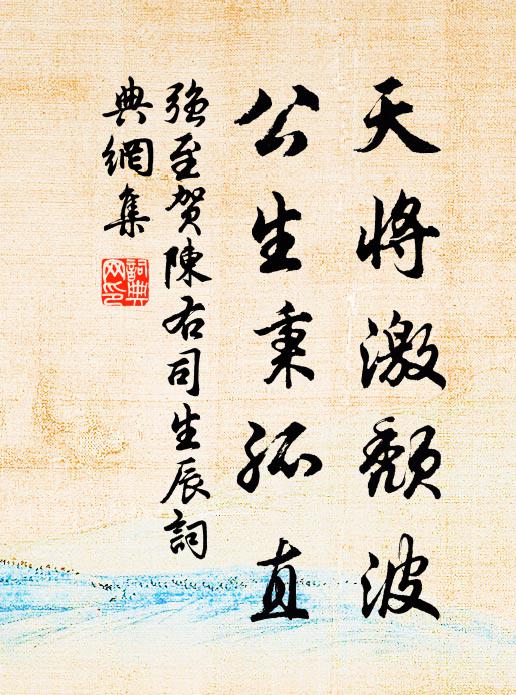 天將激頽波
公生秉孤直
強至賀陳右司生辰詞
典網集
詞典
网印